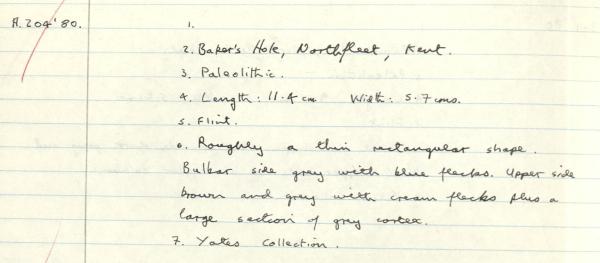 A.204'80.
1.
2. Baker's Hole, Northfleet, Kent.
3. Paleolithic.
4. Length: 11.4 cm Width: 5.7 cms.
5. Flint.
6. Roughly a thin rectangular shape.
Bulbar side grey with blue flecks. Upper side
brown and grey with cream flecks plus a
large section of grey cortex.
7. Yates Collection.